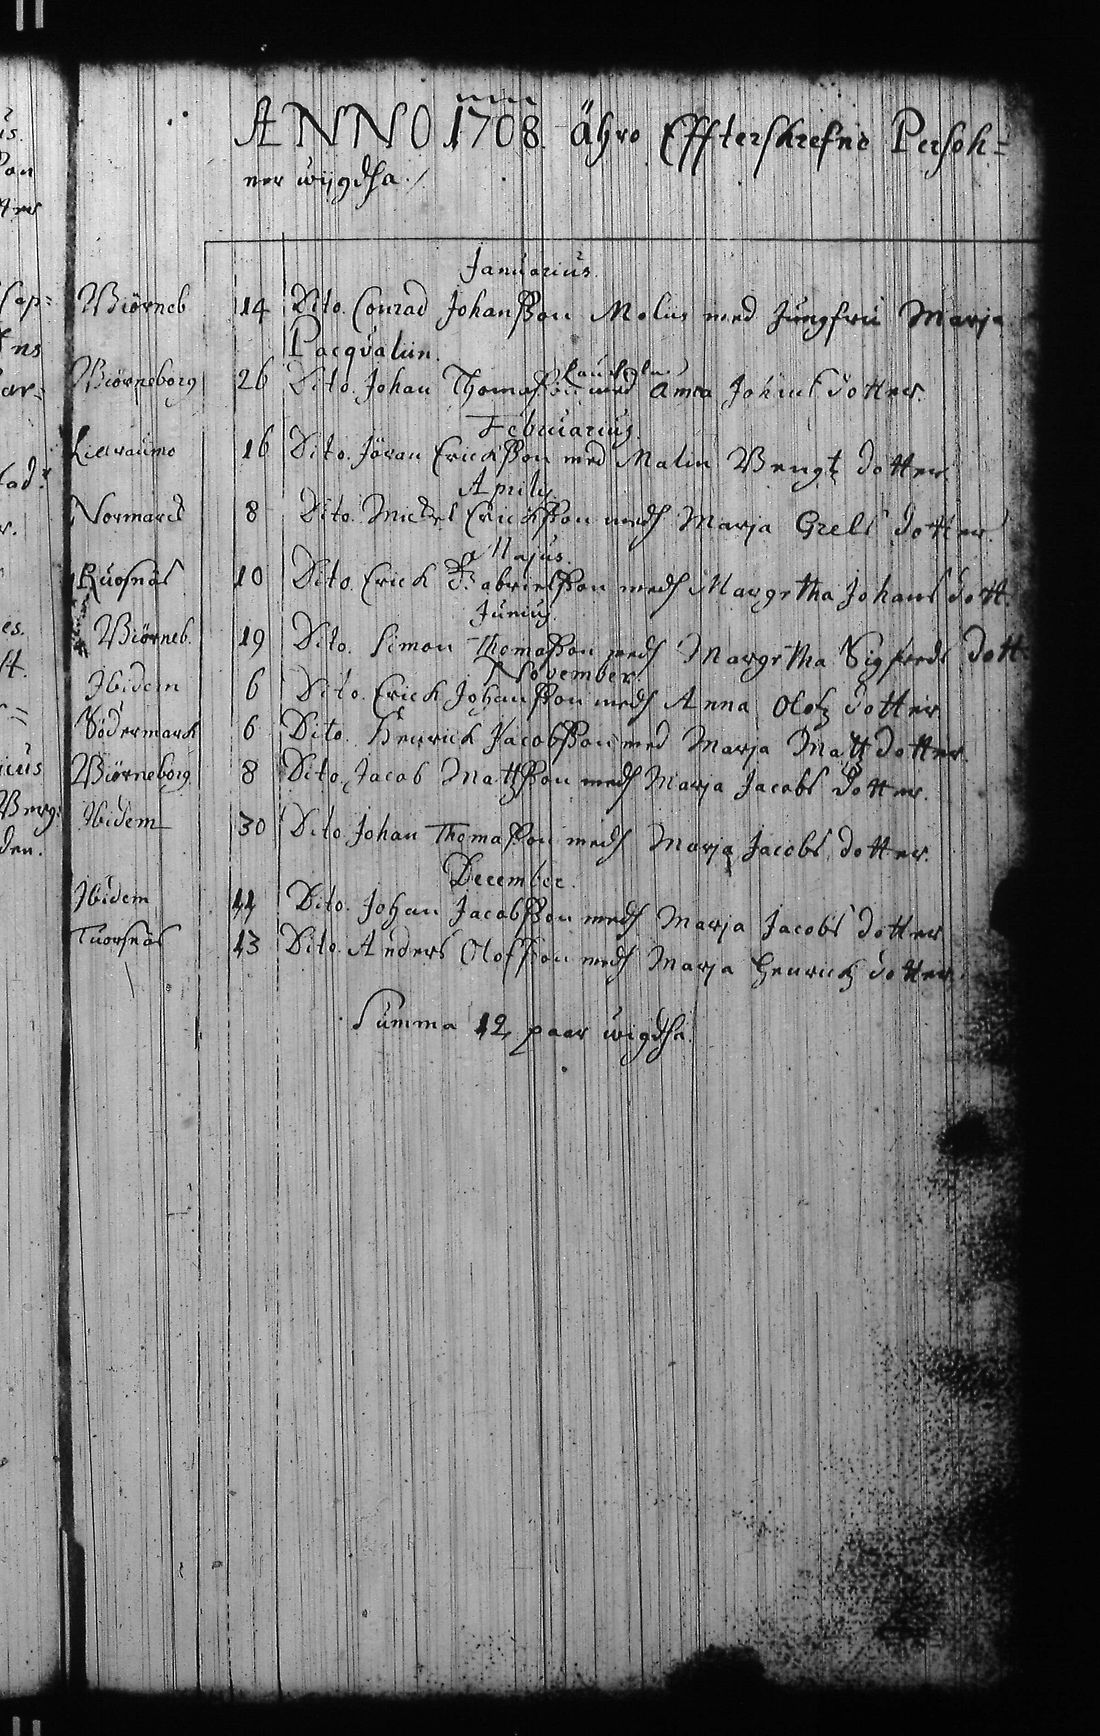 ANNO 1708. Ähro Effterskrefne Persoh=
ner wijgdha./
Januarius.
Biörneb 14 Dito. Conrad Johansson Molius med Jungfru Marja
Pacqvalin.
Biörneborg 26 Dito. Johan Thomasson med Anna Johans dotter.
Februarius.
Lillraumo 16 Dito. Jöran Ericksson med Malin Bengtz dotter.
Aprilis.
Normarck 8 Dito. Mickel Ericksson medh Marja Grels dotter.
Majus.
Ruosnäs 10 Dito. Erick Gabrielsson medh Margrtha Johans dott.
Junius.
Biörneb. 19 Dito. Simon Thomasson medh Margrtha Sigfreds dott.
November.
Ibidem 6 Dito. Erick Johansson medh Anna Olofz dotter.
Södermark 6 Dito. Henrick Jacobsson med Marja Matz dotter.
Biörneborg 8 Dito. Jacob Mattsson medh Marja Jacobs dotter.
Ibidem 30 Dito. Johan Thomasson medh Marja Jacobs dotter.
December.
Ibidem 11 Dito. Johan Jacobsson medh Marja Jacobs dotter
Tuorsnäs 13 Dito. Anders Olofsson medh Marja Henrickz dotter.
Summa 12 paar wigdha.